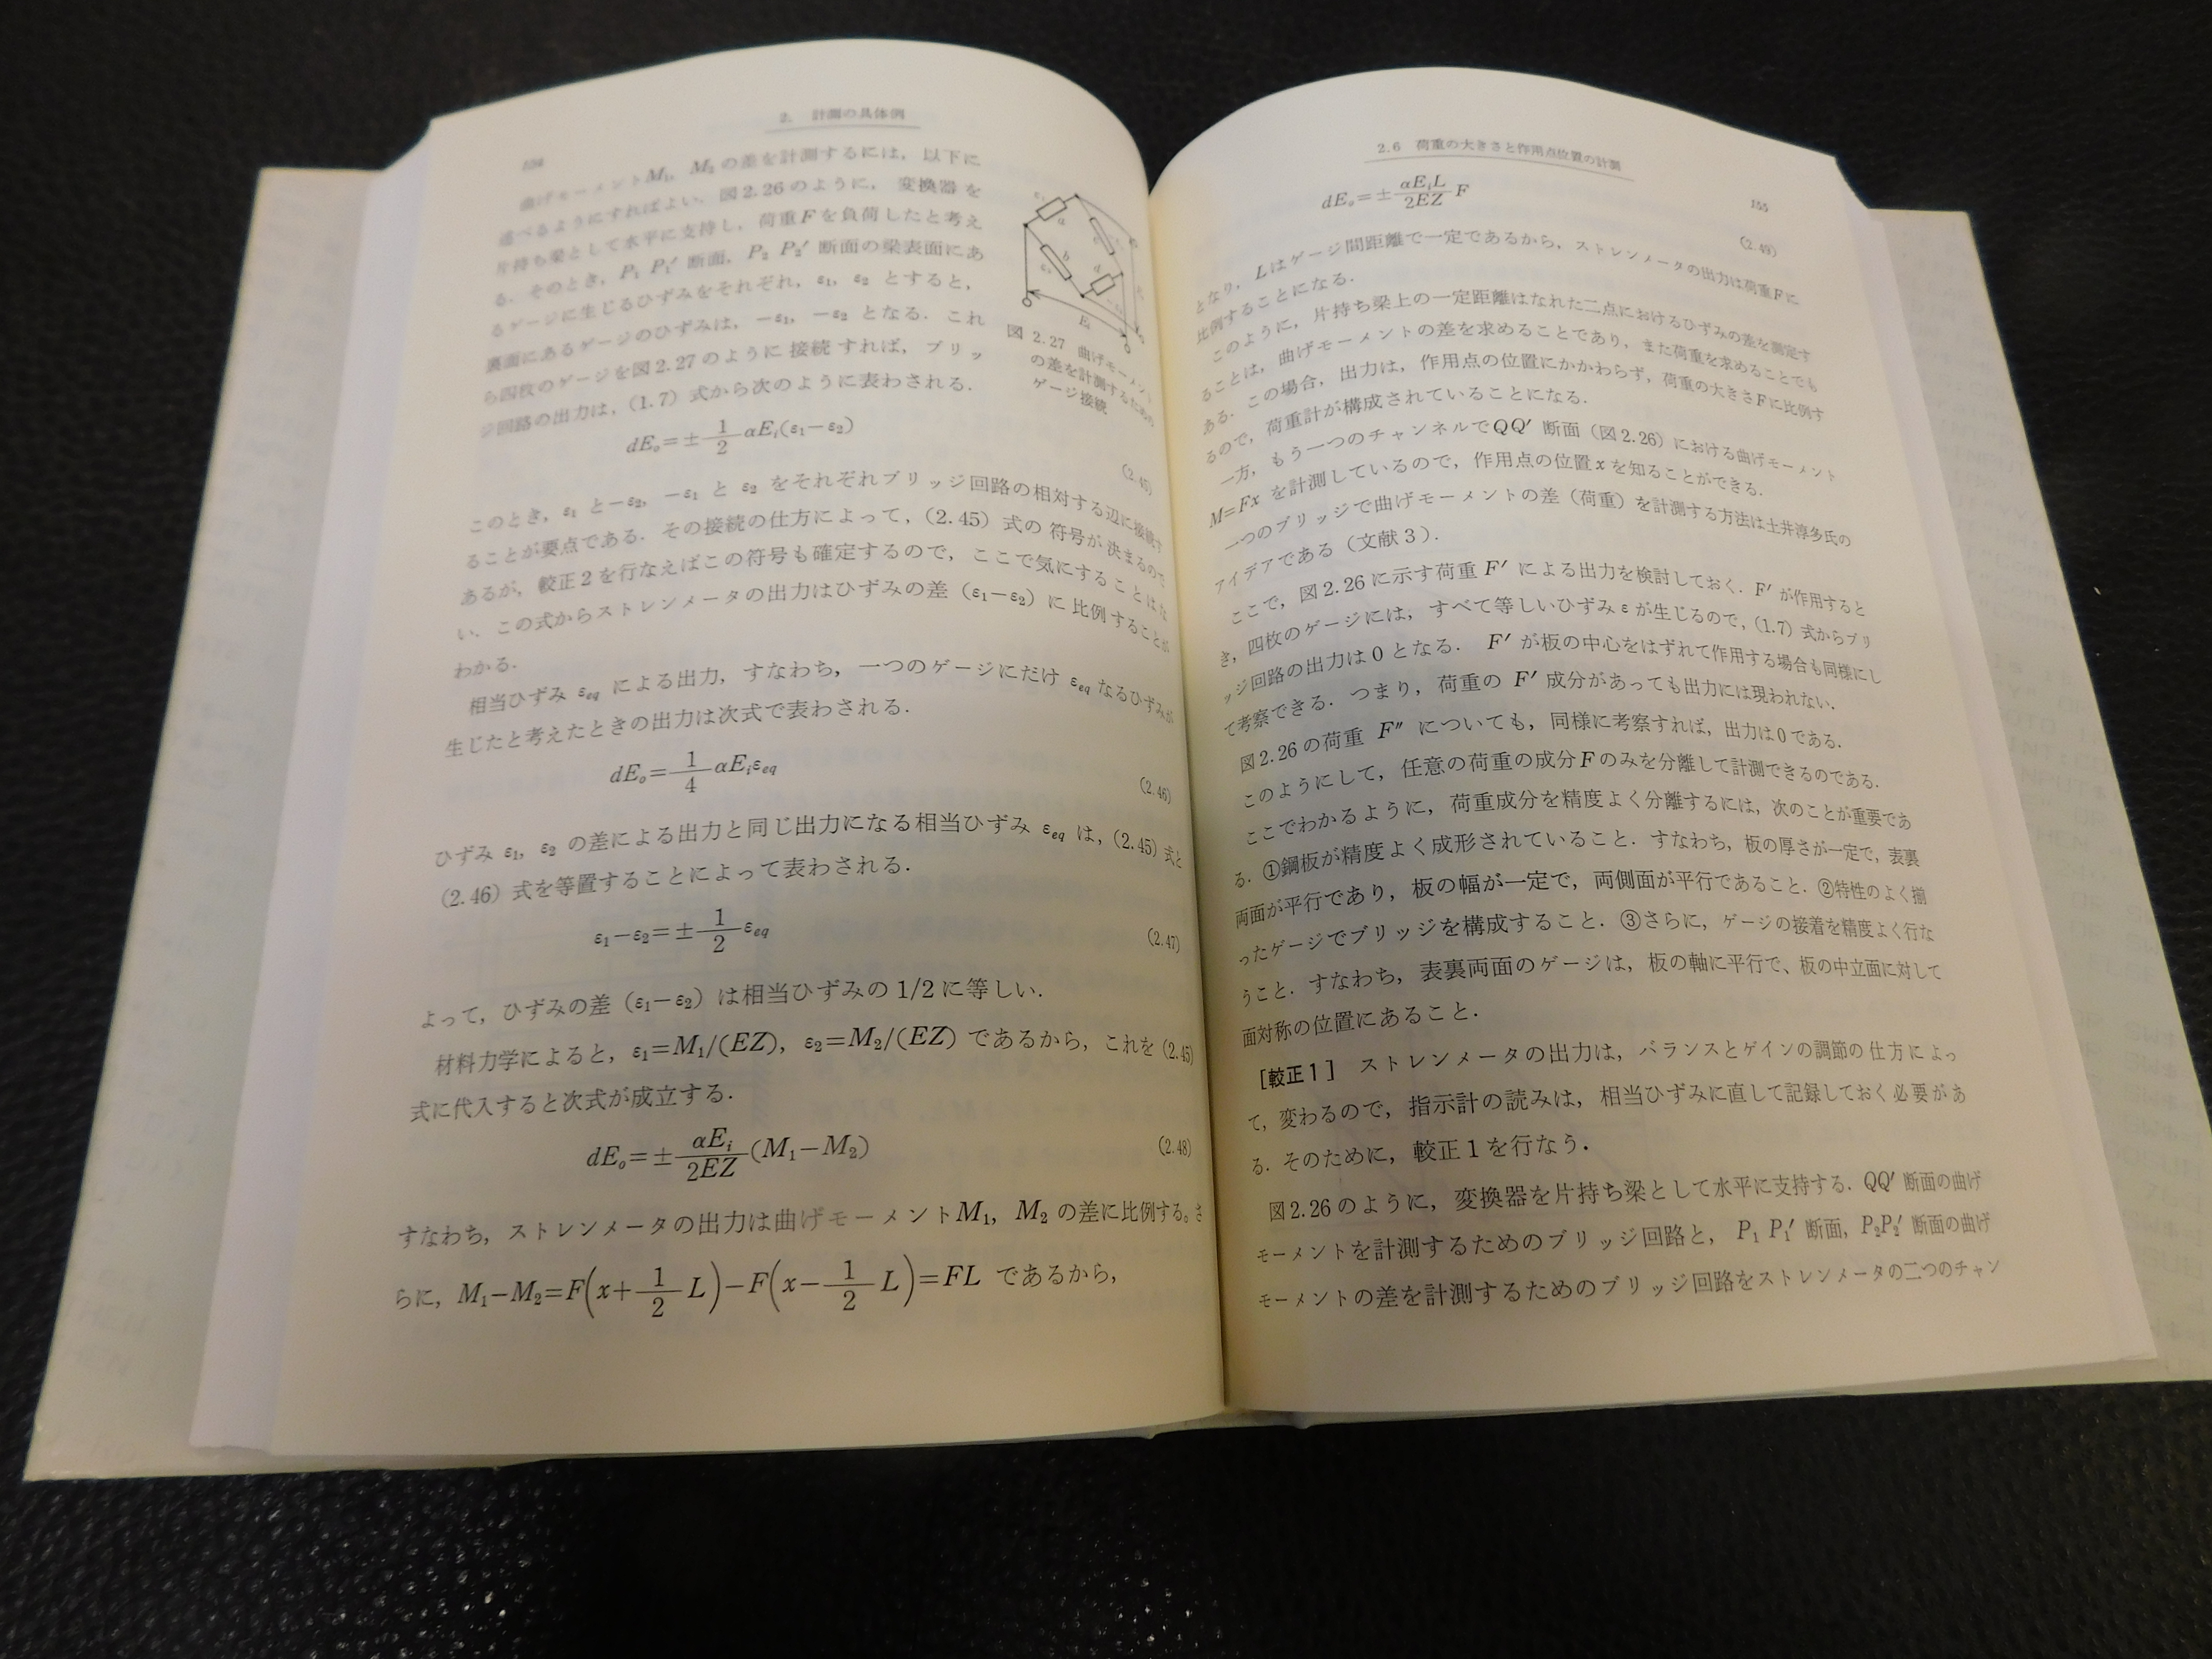 2. 計測の具体例
154
曲げモーメントM₁, M₂の差を計測するには, 以下に
述べるようにすればよい. 図2.26のように, 変換器を
片持ち梁として水平に支持し, 荷重Fを負荷したと考え
る. そのとき, P₁ P₁′ 断面, P₂ P₂′ 断面の梁表面にあ
るゲージに生じるひずみをそれぞれ, ε₁, ε₂ とすると,
裏面にあるゲージのひずみは, −ε₁, −ε₂ となる. これ
ら四枚のゲージを図2.27のように接続すれば, ブリッ
ジ回路の出力は, (1.7) 式から次のように表わされる.
図 2.27 曲げモーメント
の差を計測するための
ゲージ接続
dEₒ=±1/2 αEᵢ(ε₁−ε₂) (2.45)
このとき, ε₁ と−ε₂, −ε₁ と ε₂ をそれぞれブリッジ回路の相対する辺に接続す
ることが要点である. その接続の仕方によって, (2.45) 式の符号が決まるので
あるが, 較正2を行なえばこの符号も確定するので, ここで気にすることはな
い. この式からストレンメータの出力はひずみの差 (ε₁−ε₂) に比例することが
わかる.
相当ひずみ εeq による出力, すなわち, 一つのゲージにだけ εeq なるひずみが
生じたと考えたときの出力は次式で表わされる.
dEₒ=1/4 αEᵢεeq (2.46)
ひずみ ε₁, ε₂ の差による出力と同じ出力になる相当ひずみ εeq は, (2.45) 式と
(2.46) 式を等置することによって表わされる.
ε₁−ε₂=±1/2 εeq (2.47)
よって, ひずみの差 (ε₁−ε₂) は相当ひずみの 1/2 に等しい.
材料力学によると, ε₁=M₁/(EZ), ε₂=M₂/(EZ) であるから, これを (2.45)
式に代入すると次式が成立する.
dEₒ=±αEᵢ/2EZ (M₁−M₂) (2.48)
すなわち, ストレンメータの出力は曲げモーメントM₁, M₂ の差に比例する。さ
らに, M₁−M₂=F(x+1/2 L)−F(x−1/2 L)=FL であるから,
2.6 荷重の大きさと作用点位置の計測
155
dEₒ=±αEᵢL/2EZ F (2.49)
となり, Lはゲージ間距離で一定であるから, ストレンメータの出力は荷重Fに
比例することになる.
このように, 片持ち梁上の一定距離はなれた二点におけるひずみの差を測定す
ることは, 曲げモーメントの差を求めることであり, また荷重を求めることでも
ある. この場合, 出力は, 作用点の位置にかかわらず, 荷重の大きさFに比例す
るので, 荷重計が構成されていることになる.
一方, もう一つのチャンネルでQQ′ 断面 (図2.26) における曲げモーメント
M=Fx を計測しているので, 作用点の位置xを知ることができる.
一つのブリッジで曲げモーメントの差 (荷重) を計測する方法は土井淳多氏の
アイデアである (文献3).
ここで, 図2.26に示す荷重 F′ による出力を検討しておく. F′ が作用すると
き, 四枚のゲージには, すべて等しいひずみεが生じるので, (1.7) 式からブリ
ッジ回路の出力は0となる. F′ が板の中心をはずれて作用する場合も同様にし
て考察できる. つまり, 荷重の F′ 成分があっても出力には現われない.
図2.26の荷重 F″ についても, 同様に考察すれば, 出力は0である.
このようにして, 任意の荷重の成分Fのみを分離して計測できるのである.
ここでわかるように, 荷重成分を精度よく分離するには, 次のことが重要であ
る. ①鋼板が精度よく成形されていること. すなわち, 板の厚さが一定で, 表裏
両面が平行であり, 板の幅が一定で, 両側面が平行であること. ②特性のよく揃
ったゲージでブリッジを構成すること. ③さらに, ゲージの接着を精度よく行な
うこと. すなわち, 表裏両面のゲージは, 板の軸に平行で、板の中立面に対して
面対称の位置にあること.
[較正1] ストレンメータの出力は, バランスとゲインの調節の仕方によっ
て, 変わるので, 指示計の読みは, 相当ひずみに直して記録しておく必要があ
る. そのために, 較正1を行なう.
図2.26のように, 変換器を片持ち梁として水平に支持する. QQ′ 断面の曲げ
モーメントを計測するためのブリッジ回路と, P₁ P₁′ 断面, P₂P₂′ 断面の曲げ
モーメントの差を計測するためのブリッジ回路をストレンメータの二つのチャン